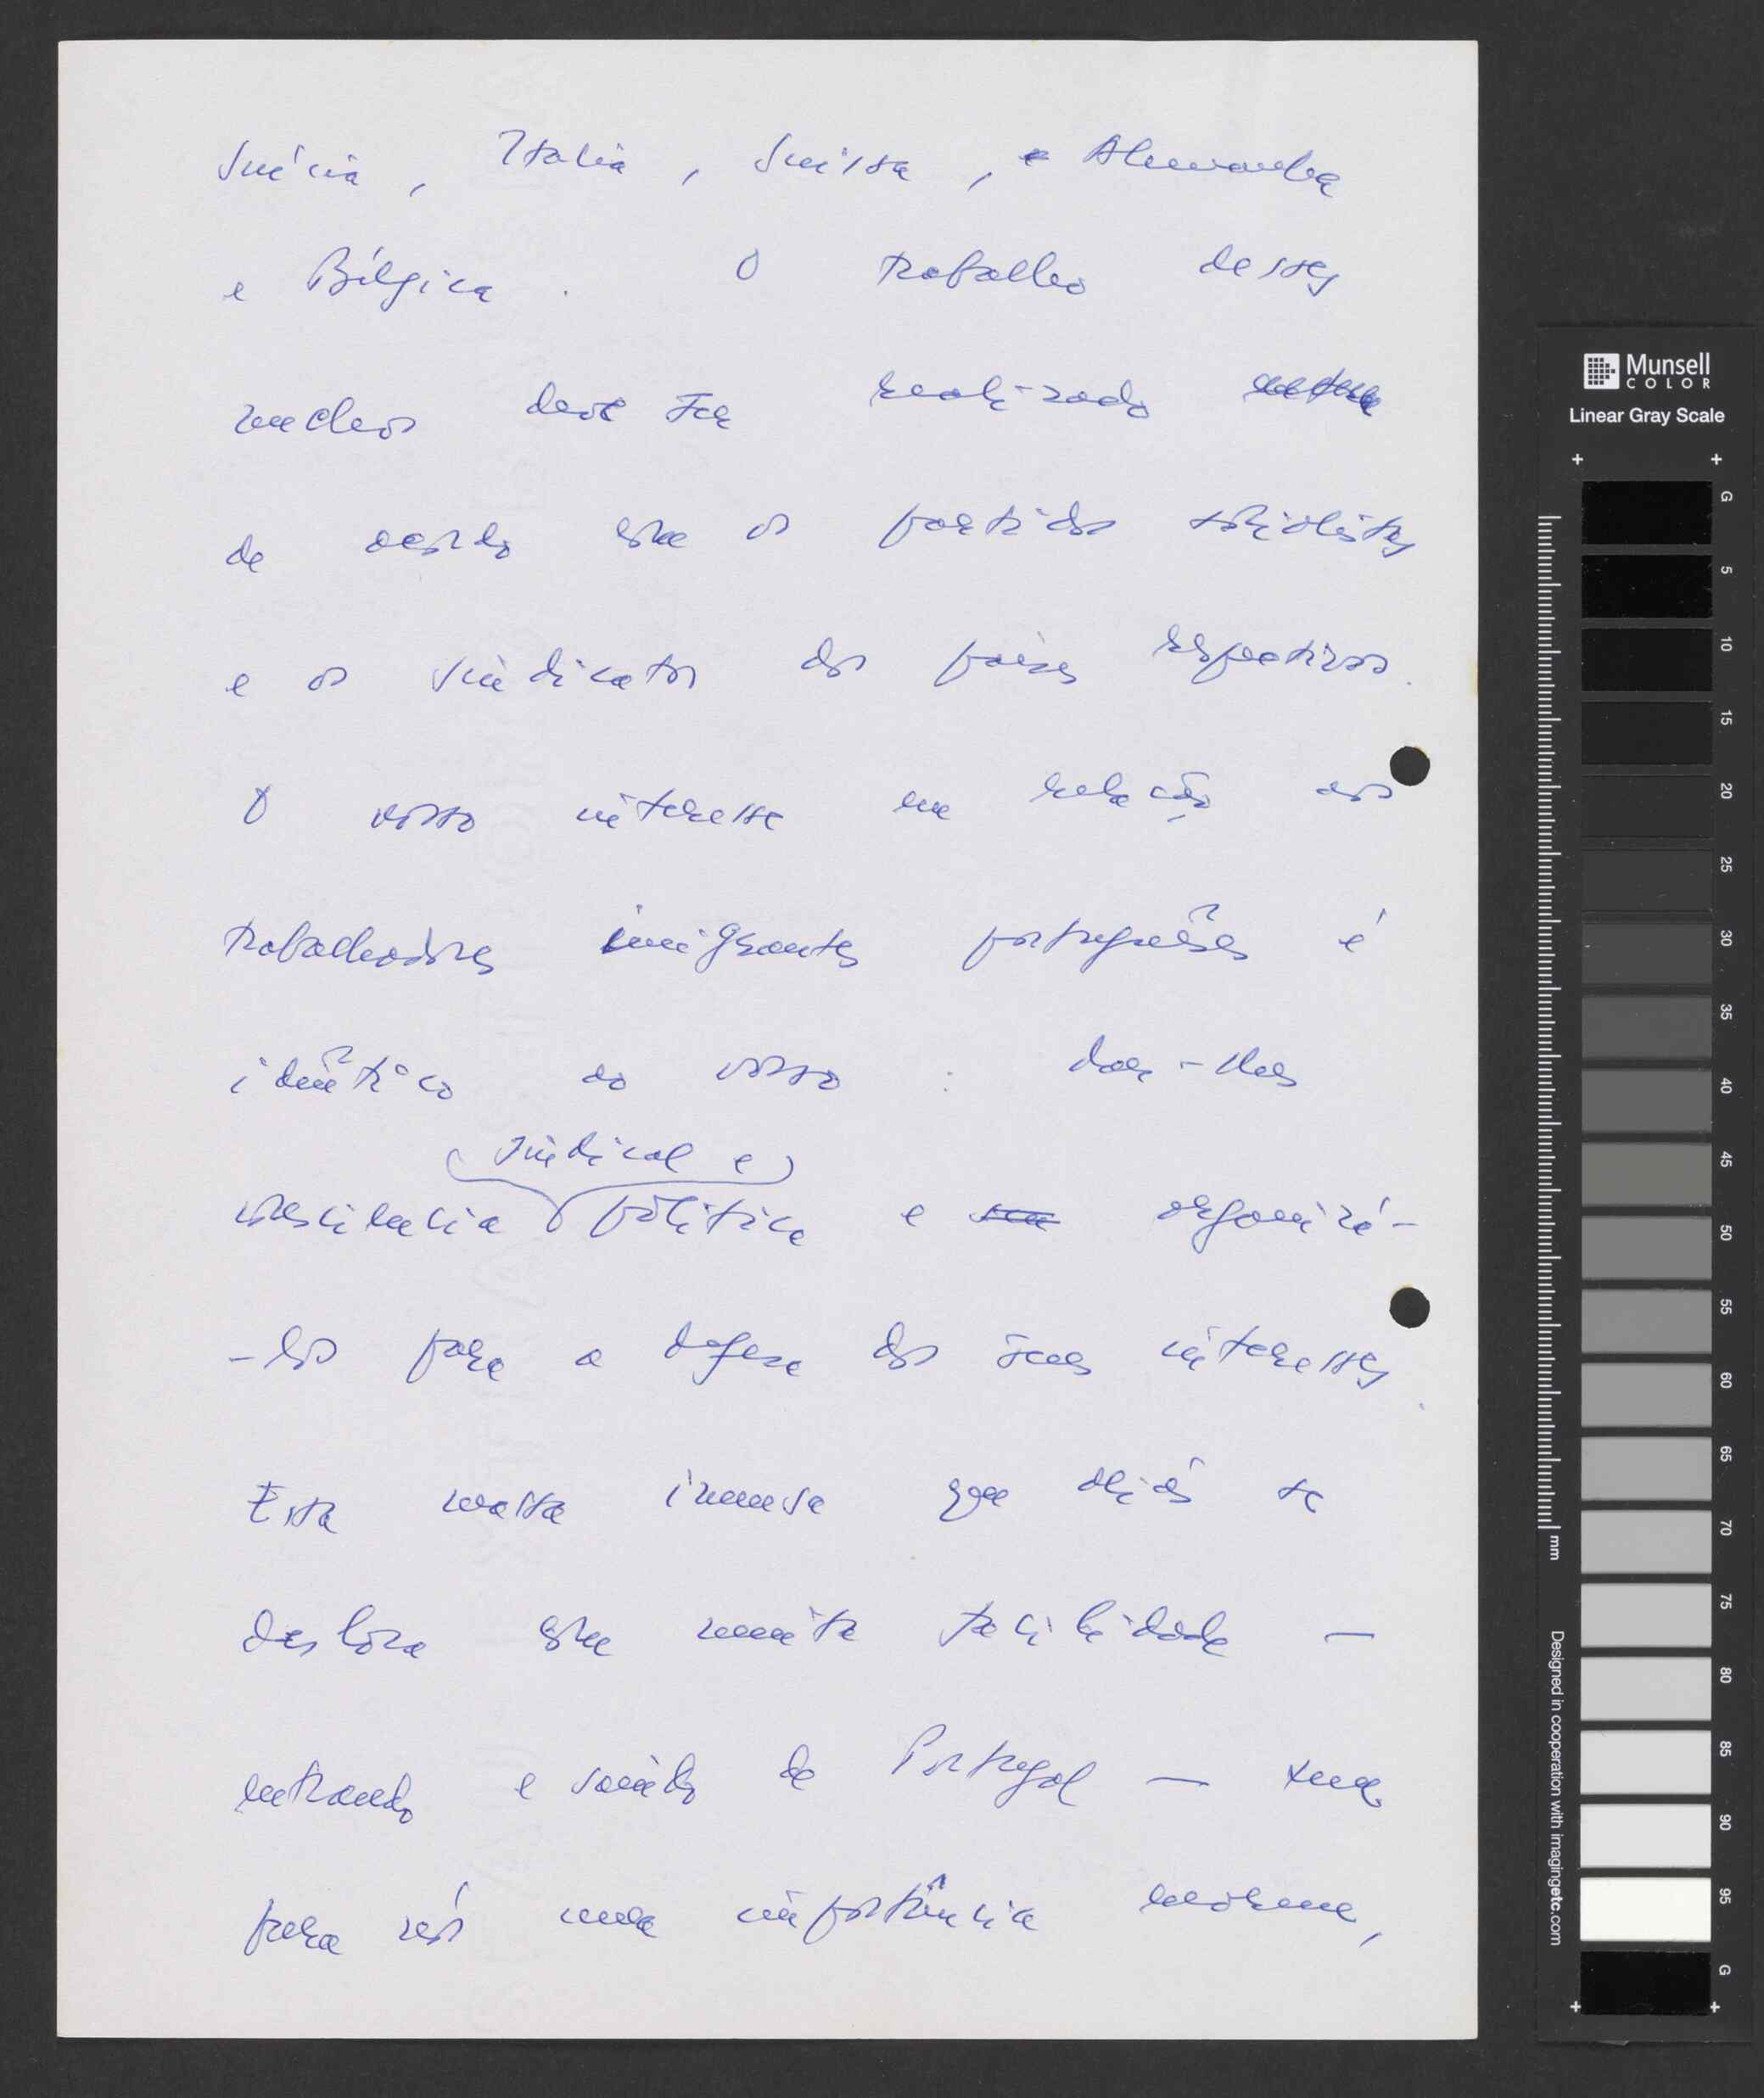 Suécia, Italia, Suissa, e Alemanha
e Bélgica. O trabalho desses
nucleos deve ser realizado
de acordo com os partidos socialistas
e os sindicatos dos países respectivos.
O nosso interesse em relação aos
trabalhadores imigrantes portuguêses é
idêntico ao vosso: dar-lhes
sindical e
consciencia política e organizá-
-los para a defesa dos seus interesses.
Esta massa imensa que aliás se
desloca com muita facilidade —
entrando e saindo de Portugal — tem
para nós uma importância enorme,
Munsell
COLOR
Linear Gray Scale
G
5
10
15
20
25
30
35
40
45
50
55
60
65
70
75
80
85
90
95
G
mm
Designed in cooperation with imagingetc.com